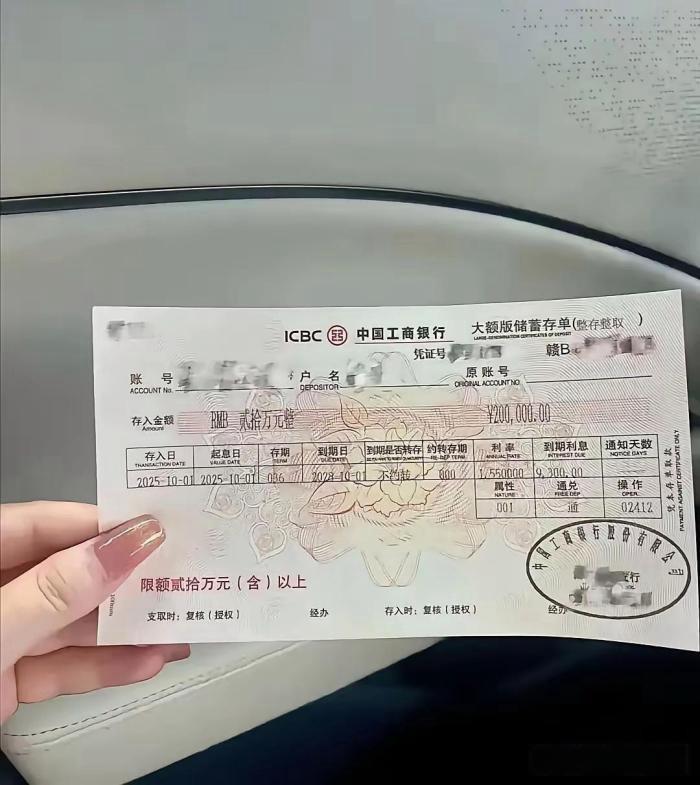 ICBC 中国工商银行 大额版储蓄存单(整存整取 )
LARGE-DENOMINATION CERTIFICATES OF DEPOSIT
凭证号 赣B
账 号 户 名 原账号
ACCOUNT No. DEPOSITOR ORIGINAL ACCOUNT NO
存入金额 RMB 贰拾万元整 ¥200,000.00
Amount
存入日 起息日 存期 到期日 到期是否转存 约转存期 利率 到期利息 通知天数
TRANSACTION DATE VALUE DATE TERM DUE DATE RE-DEP TERM ANNUAL RATE INTEREST DUE NOTICE DAYS
2025-10-01 2025-10-01 036 2028-10-01 不约转 800 1.550000 9,300.00
属性 通兑 操作
NATURE FREE DEP OPER.
001 通 02412
凭本存单取款
PAYMENT AGAINST CERTIFICATE ONLY
中国工商银行股份有限公司
支行
限额贰拾万元(含)以上
支取时:复核(授权) 经办 存入时:复核(授权) 经办